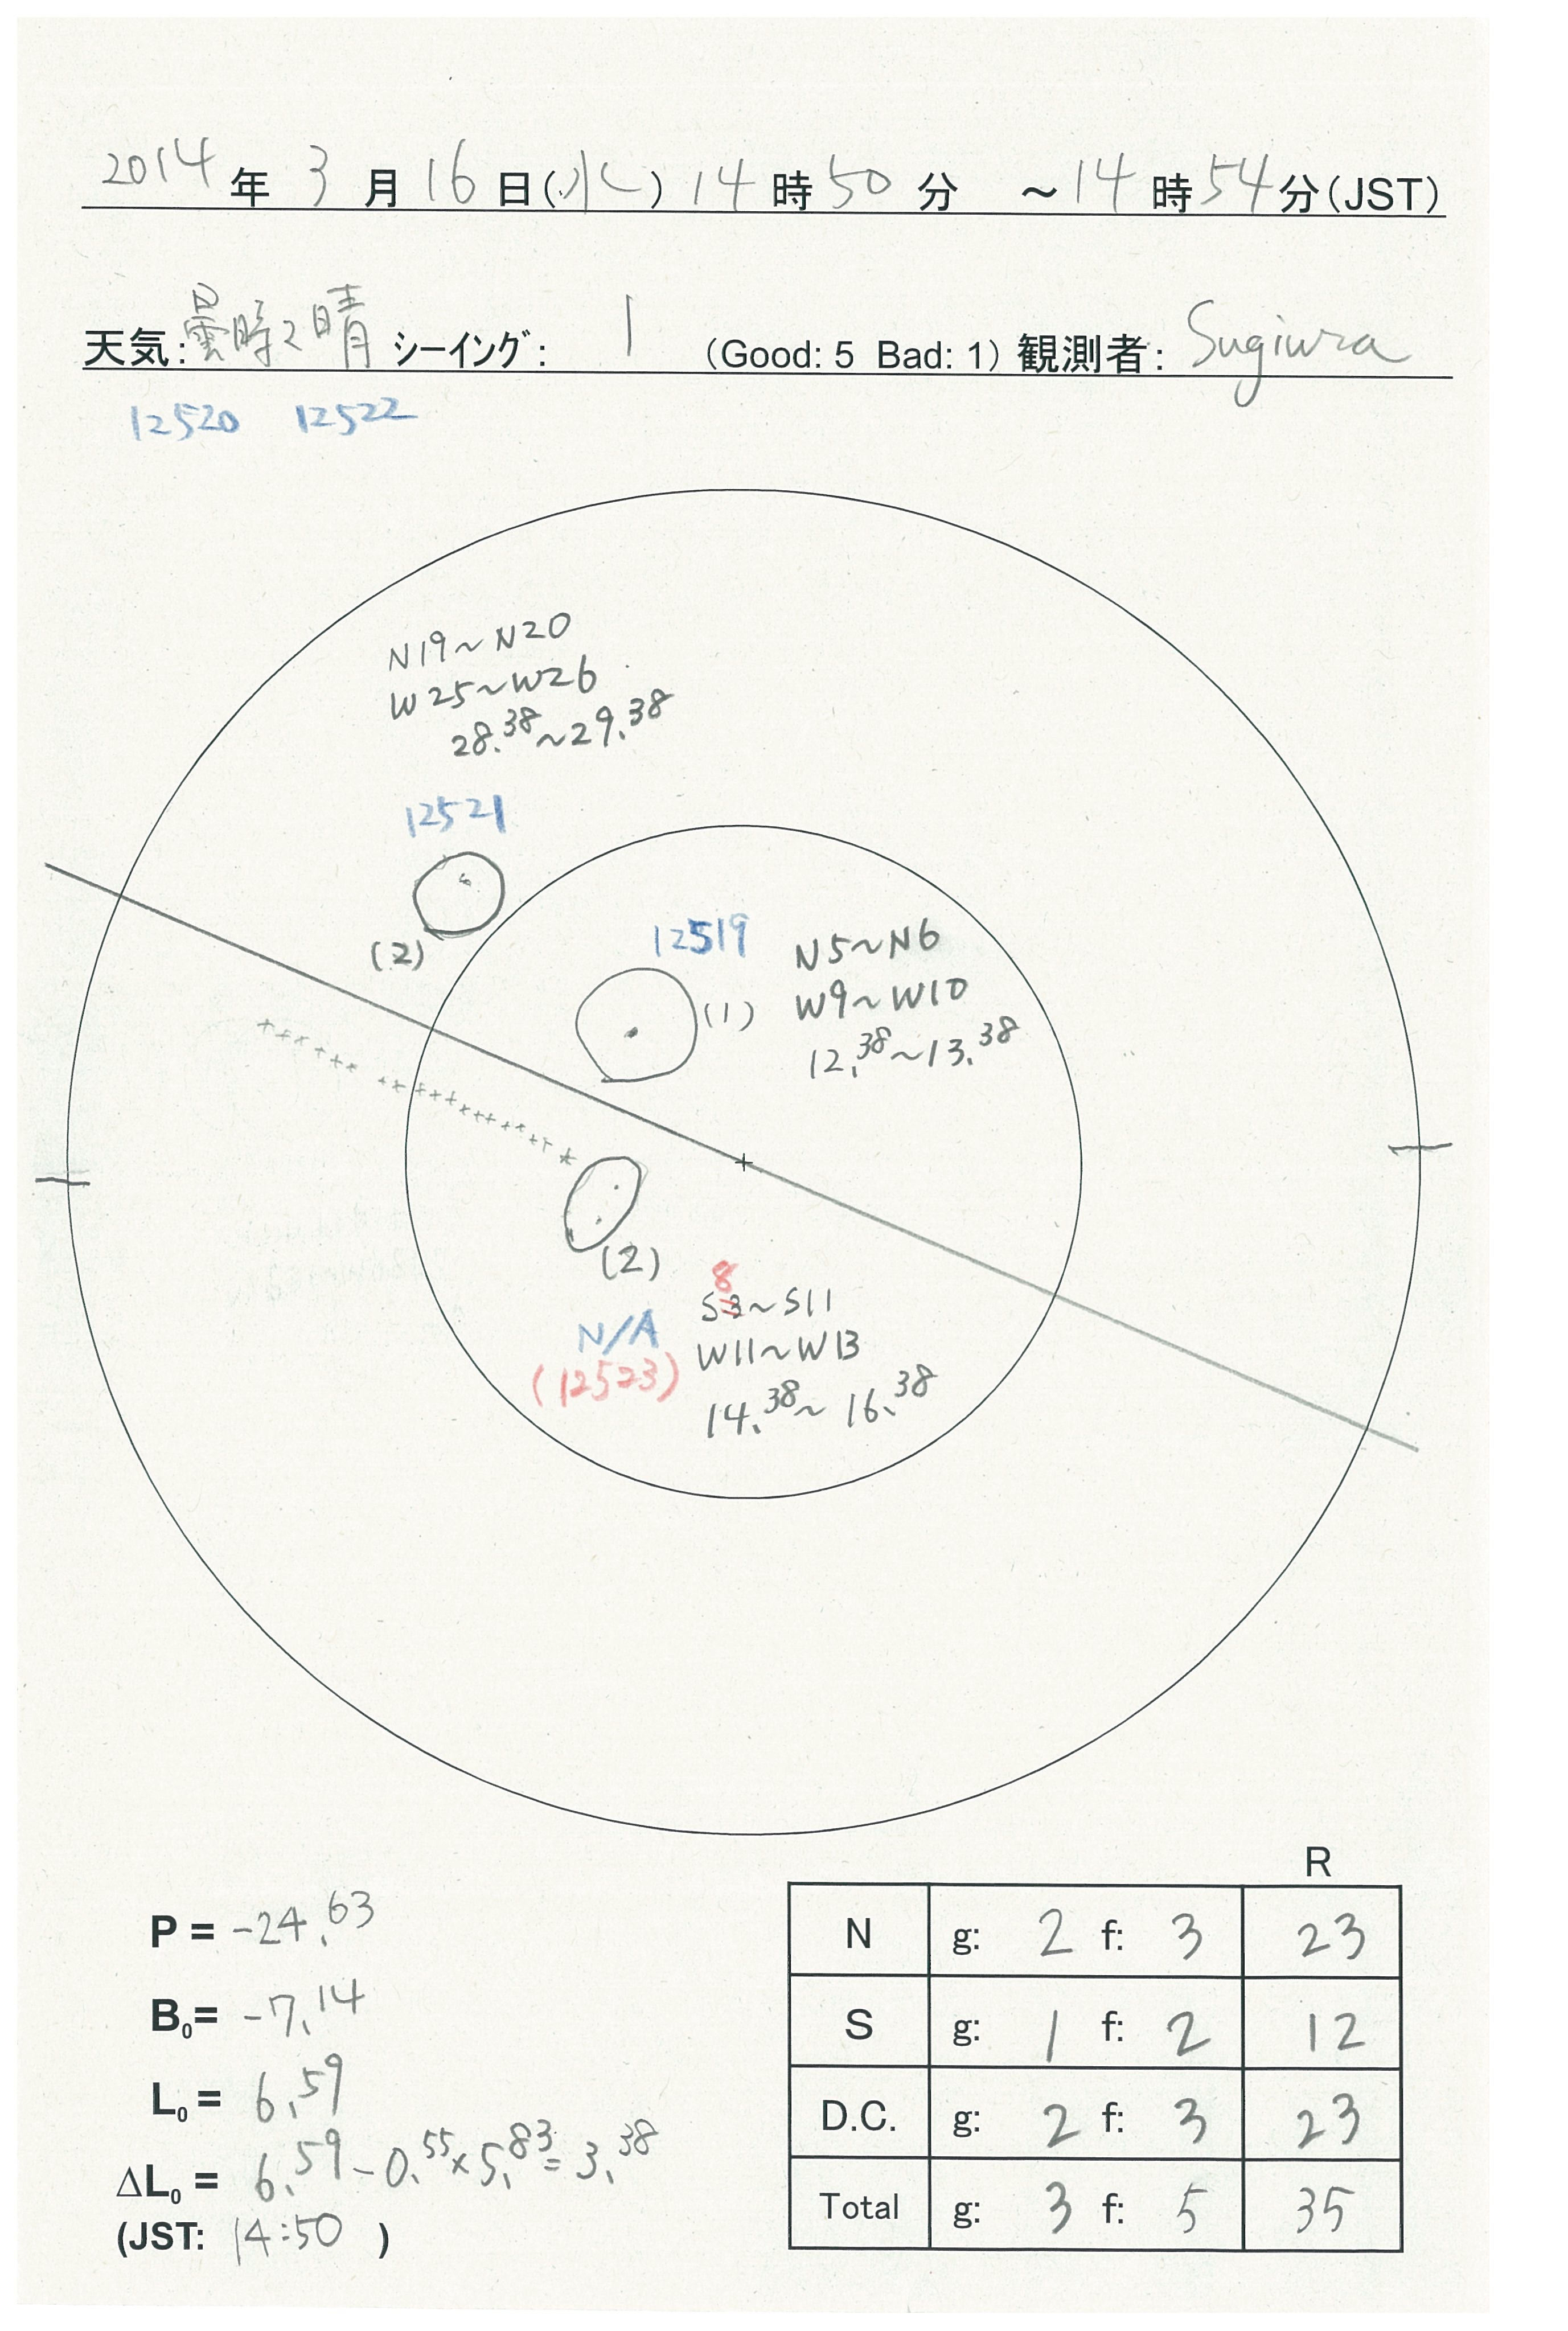 2014年 3月16日(水) 14時50分 ~14時54分(JST)
天気:曇時々晴 シーイング: 1 (Good: 5 Bad: 1) 観測者: Sugiura
12520 12522
N19~N20
W25~W26
28.38~29.38
12521
(2)
12519
(1)
N5~N6
W9~W10
12.38~13.38
(2)
8
S3~S11
N/A
W11~W13
(12523)
14.38~16.38
P = -24.63
B₀= -7.14
L₀ = 6.59
ΔL₀ = 6.59-0.55×5.83=3.38
(JST: 14:50 )
R
N g: 2 f: 3 23
S g: 1 f: 2 12
D.C. g: 2 f: 3 23
Total g: 3 f: 5 35